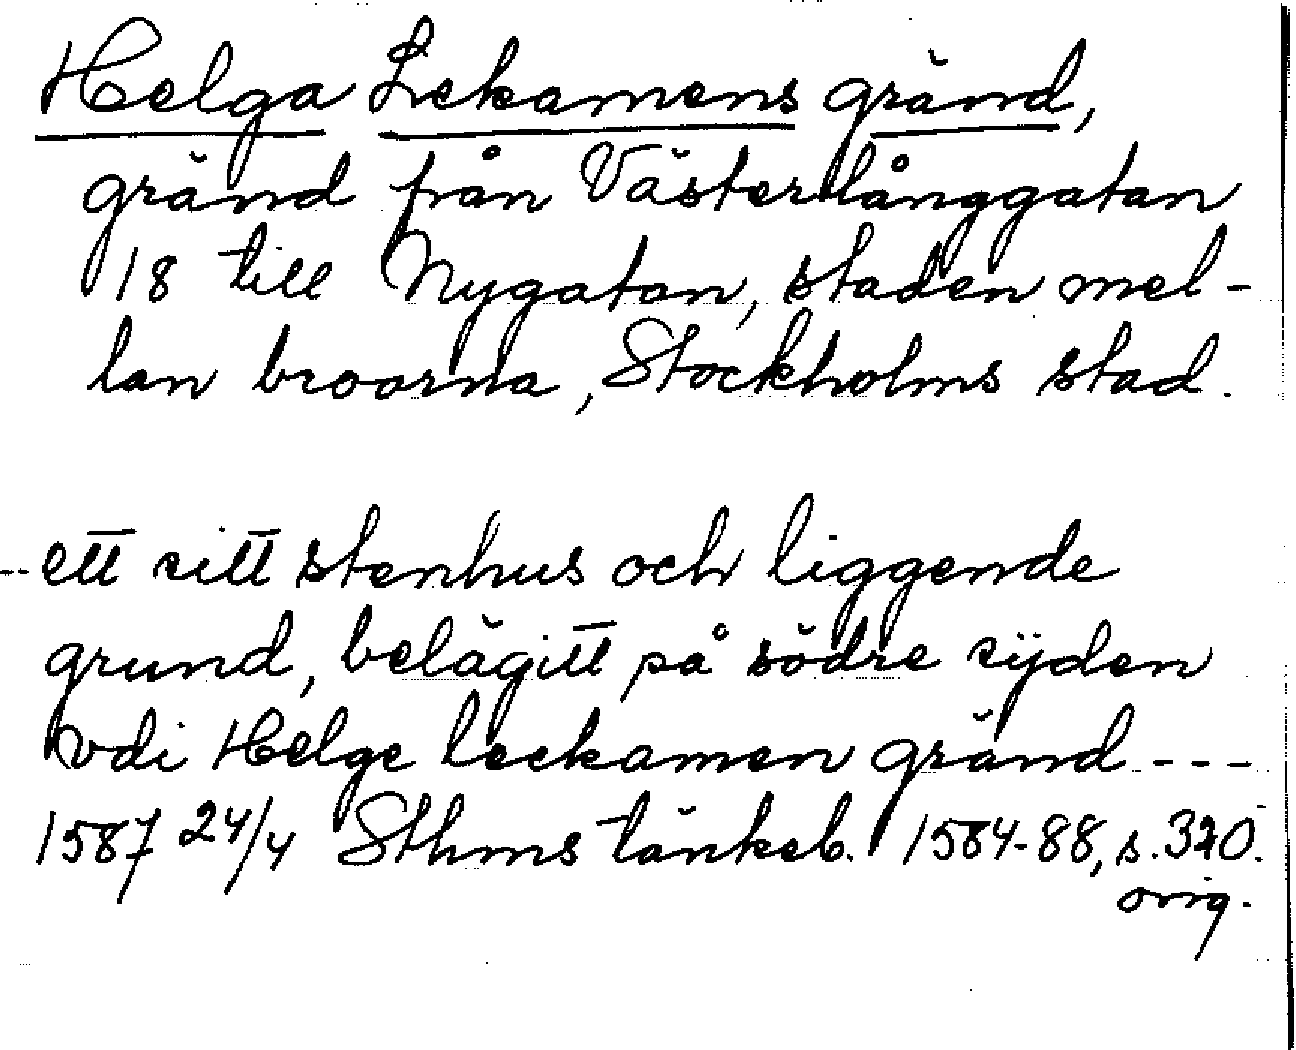 Helga Lekamens gränd,
gränd från Västerlånggatan
18 till Nygatan, staden mel-
lan broarna, Stockholms stad.
--ett sitt stenhus och liggende
grund, belägitt på södre sijden
vdi Helge leekamen gränd ---
1587 24/4 Sthms tänkeb. 1584-88, s.
orig.